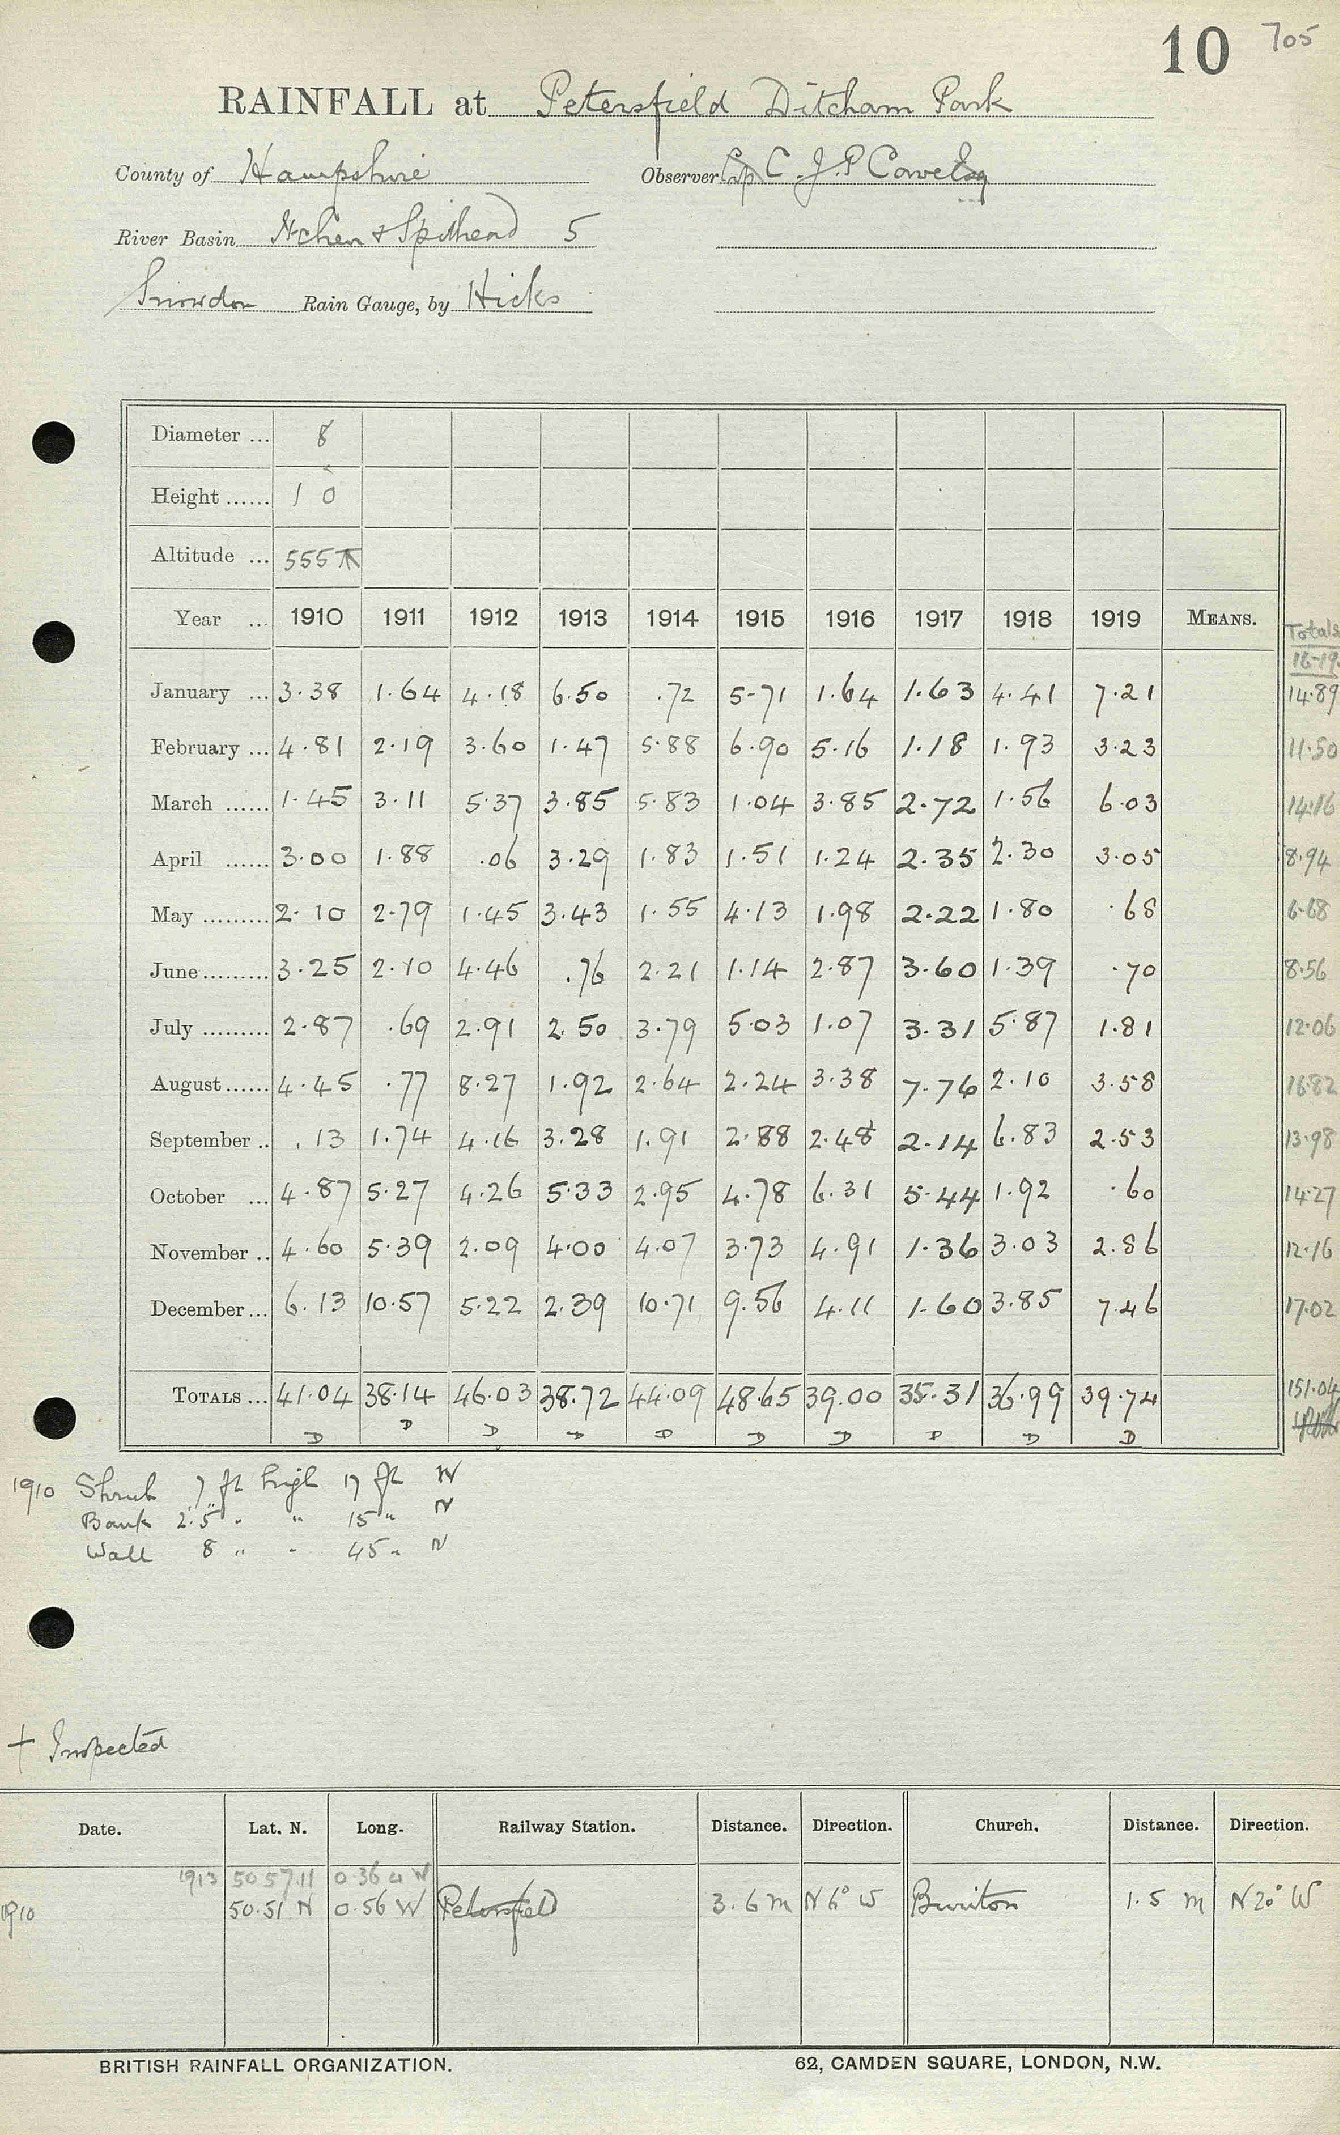 10 705
RAINFALL at Petersfield Ditcham Park
County of Hampshire Observer C. J. P Cave Esq
River Basin Itchen & Spithead 5
Snowdon Rain Gauge, by Hicks
Diameter ... 8
Height ...... 1 0
Altitude ... 555
Year ... 1910 1911 1912 1913 1914 1915 1916 1917 1918 1919 MEANS. Totals
16-19
January ... 3.38 1.64 4.18 6.50 .72 5.71 1.64 1.63 4.41 7.21 14.89
February ... 4.81 2.19 3.60 1.47 5.88 6.90 5.16 1.18 1.93 3.23 11.50
March ...... 1.45 3.11 5.37 3.85 5.83 1.04 3.85 2.72 1.56 6.03 14.16
April ...... 3.00 1.88 .06 3.29 1.83 1.51 1.24 2.35 2.30 3.05 8.94
May ......... 2.10 2.79 1.45 3.43 1.55 4.13 1.98 2.22 1.80 .68 6.68
June ......... 3.25 2.10 4.46 .76 2.21 1.14 2.87 3.60 1.39 .70 8.56
July ......... 2.87 .69 2.91 2.50 3.79 5.03 1.07 3.31 5.87 1.81 12.06
August ...... 4.45 .77 8.27 1.92 2.64 2.24 3.38 7.76 2.10 3.58 16.82
September .. .13 1.74 4.16 3.28 1.91 2.88 2.48 2.14 6.83 2.53 13.98
October ... 4.87 5.27 4.26 5.33 2.95 4.78 6.31 5.44 1.92 .60 14.27
November .. 4.60 5.39 2.09 4.00 4.07 3.73 4.91 1.36 3.03 2.86 12.16
December ... 6.13 10.57 5.22 2.39 10.71 9.56 4.11 1.60 3.85 7.46 17.02
TOTALS ... 41.04 38.14 46.03 38.72 44.09 48.65 39.00 35.31 36.99 39.74 151.04
D D D D D D D D D D
1910 Shrub 7 ft high 17 ft W
Bank 2.5 " " 15 " N
Wall 8 " " 45 " N
+ Inspected
Date. Lat. N. Long. Railway Station. Distance. Direction. Church. Distance. Direction.
1913 50.57.11 0.36 W
1910 50.51 N 0.56 W Petersfield 3.6 m N 6° W Buriton 1.5 m N 20° W
BRITISH RAINFALL ORGANIZATION. 62, CAMDEN SQUARE, LONDON, N.W.